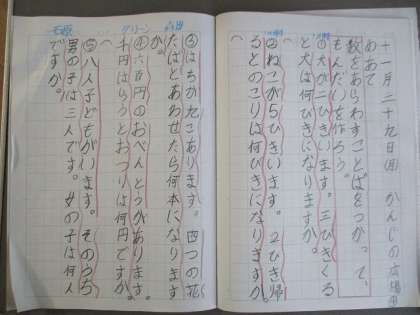 十一月二十九日(月) かんじの広場④
めあて
数をあらわすことばをつかって、
もんだいを作ろう。
①犬が二ひきいます。三びきくる
と犬は何びきになりますか。
②ねこが5ひきいます。2ひき帰
るとのこりは何びきになりますか。
③はちが九こあります。四つの花
たばとあわせたら何本になります
か。
④六百円のおべんとうがあります。
千円はらうとおつりは何円ですか。
⑤八人子どもがいます。そのうち
男の子は三人です。女の子は何人
ですか。